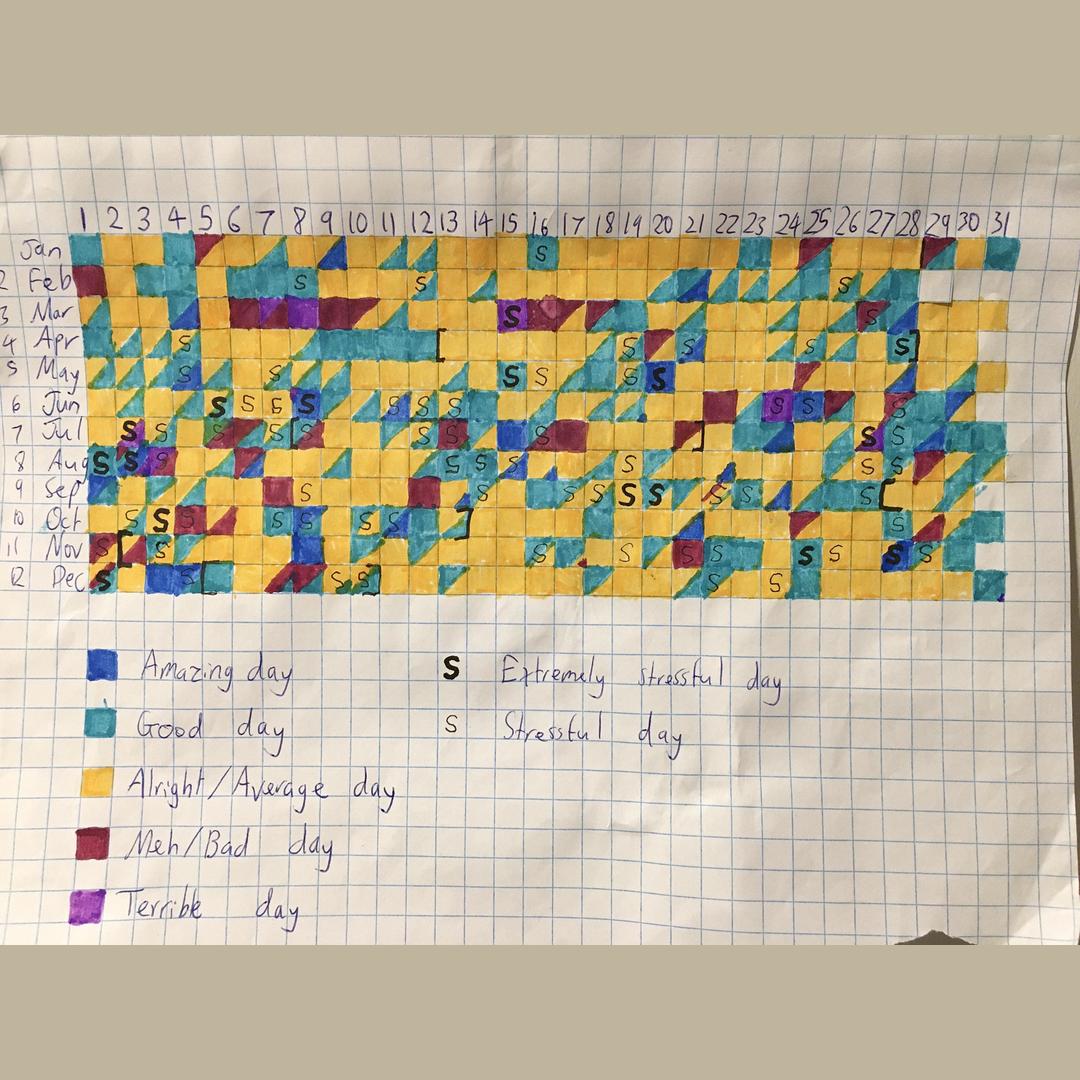 1 2 3 4 5 6 7 8 9 10 11 12 13 14 15 16 17 18 19 20 21 22 23 24 25 26 27 28 29 30 31
Jan S
2 Feb S S S
3 Mar S S
4 Apr S [ S S S S ]
5 May S S S S S S
6 Jun S S S S S S S S S S
7 Jul S S S S [ S S S S ] S S
8 Aug S S S S S S S S S S
9 Sep S S S S S S S S S [
10 Oct S S S S S S S ] S
11 Nov S [ S S S S S S S S S
12 Dec S S [ S S ] S S
Amazing day S Extremely stressful day
Good day S Stressful day
Alright/Average day
Meh/Bad day
Terrible day